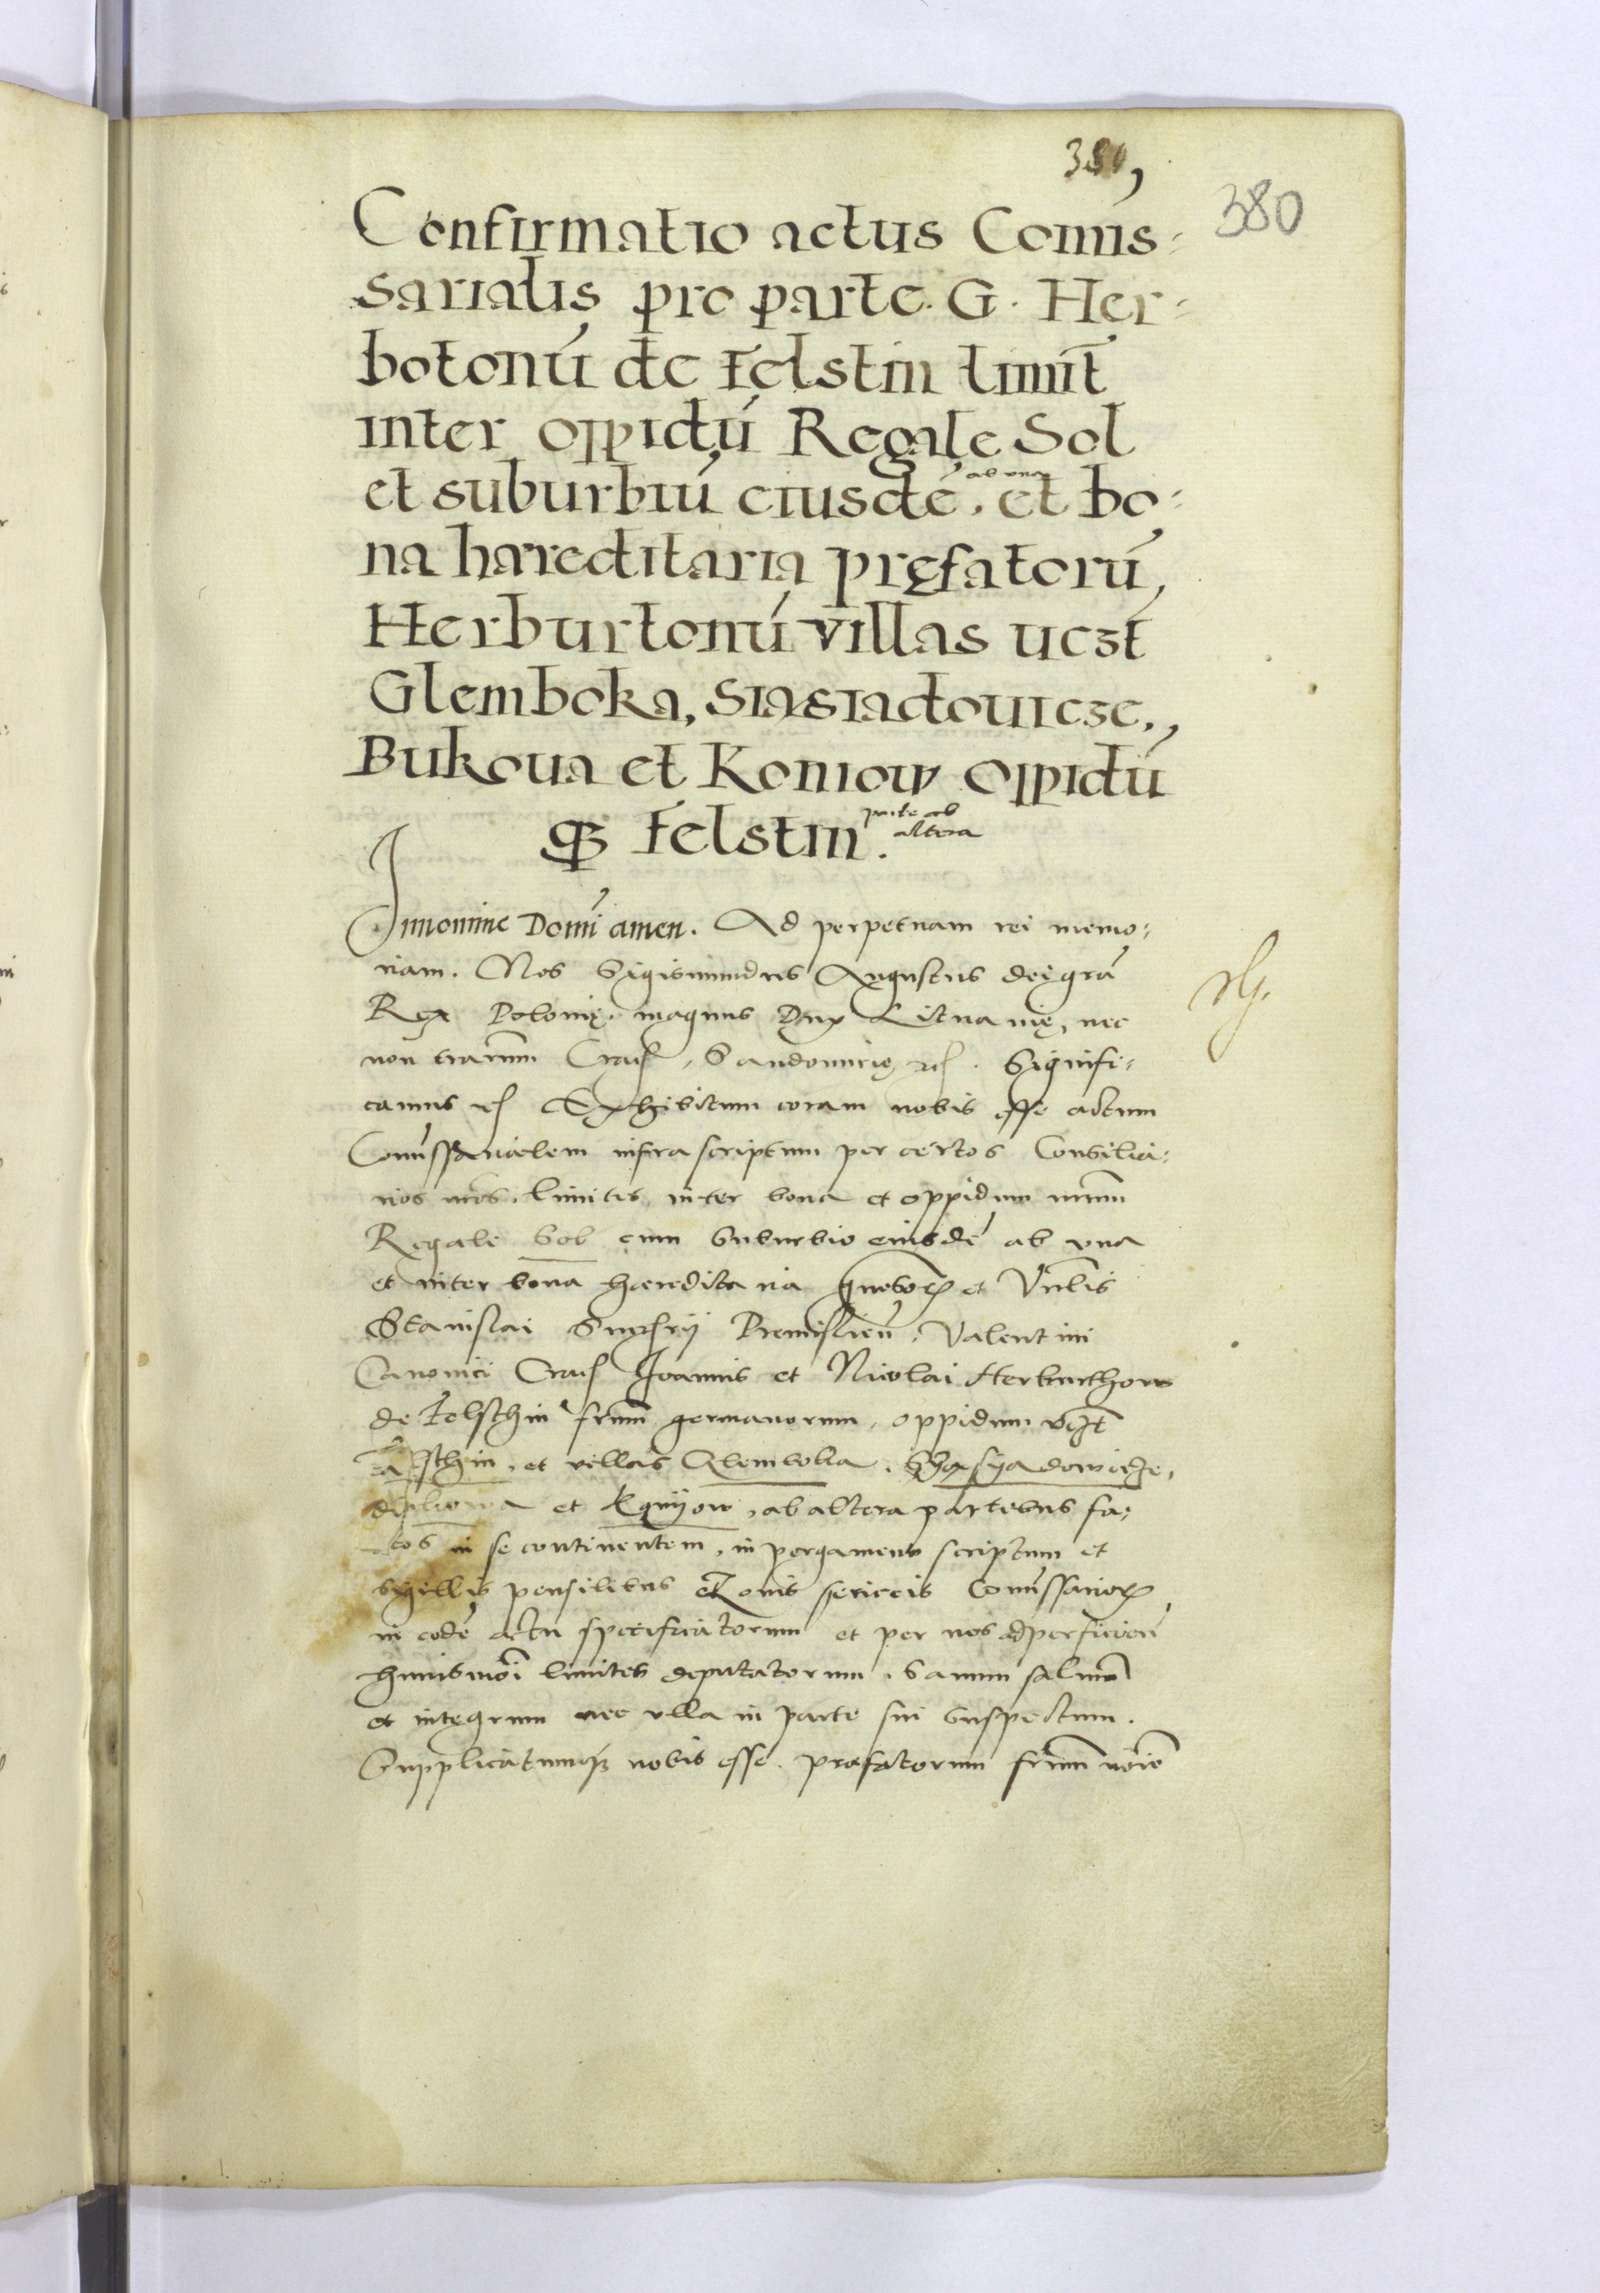 380,
380
Confirmatio actus Comis=
sarialis pro parte G. Her=
botonū de Felstin limit
inter oppidū Regale Sol
et suburbiū eiusdē, ab una et bo=
na hæreditaria pręfatorū,
Herburtonū villas uczt
Glemboka, Siasiadouicze,
Bukoua et Koniow oppidū
qꝫ Felstin. parte ab altera
In nomine Domī amen. Ad perpetuam rei memo=
riam. Nos Sigismundus Augustus dei grā
Rex Polonię, magnus Dux Lituanię, nec
non terrarum Crac, Sandomirię etc. Signifi=
camus etc Exhibitum coram nobis esse actum
Comissarialem infrascriptum per certos Consilia=
rios nros, limitis inter bona et oppidum nrum
Regale Sol cum suburbio eiusdē ab una
et inter bona hæreditaria et
Stanislai Premislień, Valentini
Canonici Crac Joannis et Nicolai Herburthow
de Felschin frum germanorum, oppidum vczt
et villas Glemboka, Syasyadowicze,
et Konyow, ab altera partibus fa=
ctos in se continentem, in pergameno scriptum et
sigillis pensilibus sericeis Comissarioꝝ
in eodē actu specificatorum et per nos ad
huiusmōi limites deputatorum, sanum saluum
et integrum nec ulla in parte sui suspectum.
Supplicatumqꝫ nobis esse præfatorum frum noīe